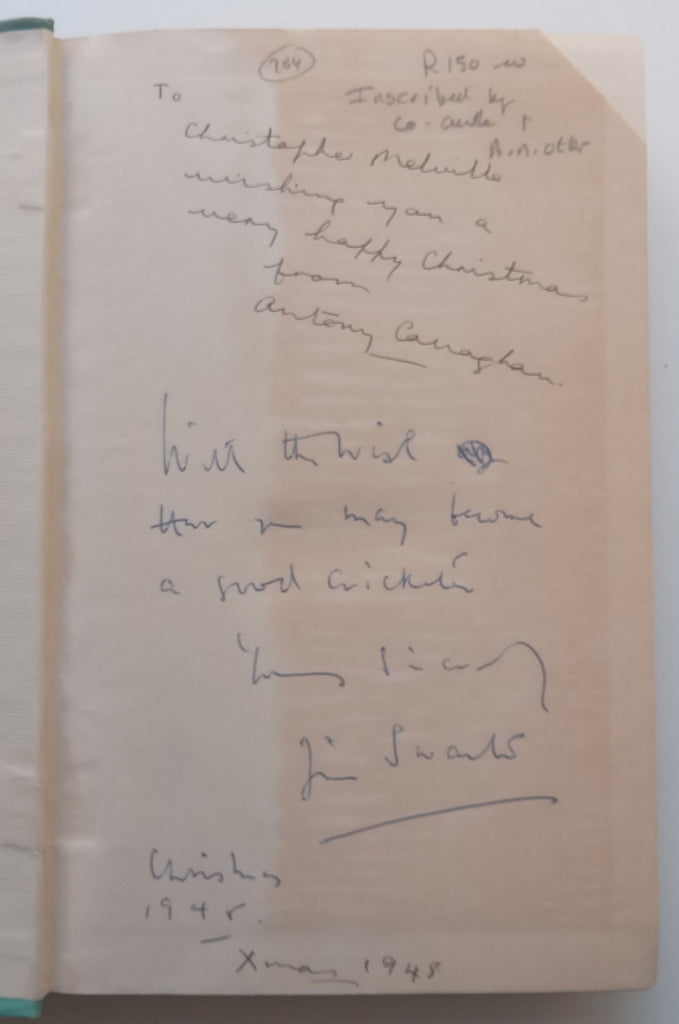 784
R150-00
Inscribed by
co-author
A.N. other
To
Christopher Melville
wishing you a
very happy Christmas
from
Antony Callaghan.
With the wish
that you may become
a good cricketer
Yours sincerely
Jim Swanton
Christmas
1948.
Xmas 1948